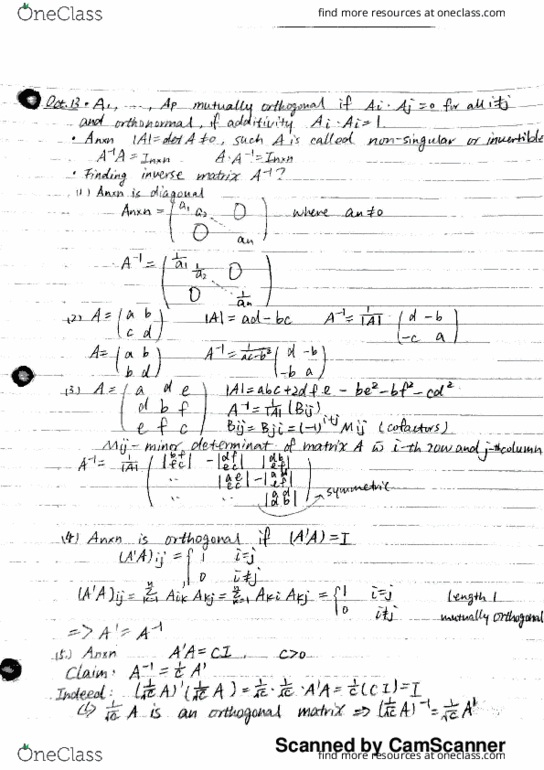 OneClass
find more resources at oneclass.com
Oct.13 • A₁, ....., Ap mutually orthogonal if Ai · Aj = 0 for all i≠j
and orthonormal, if additivity Ai · Ai = 1
• Anxn |A| = det A ≠ 0, such A is called non-singular or invertible
A⁻¹A = Inxn A · A⁻¹ = Inxn
• Finding inverse matrix A⁻¹ ?
(1) Anxn is diagonal
Anxn = ( a₁ a₂ 0 0 an ) where an ≠ 0
A⁻¹ = ( 1/a₁ 1/a₂ 0 0 1/an )
(2) A = ( a b c d ) |A| = ad - bc A⁻¹ = 1/|A| ( d -b -c a )
A = ( a b b d ) A⁻¹ = 1/(ac-b²) ( d -b -b a )
(3) A = ( a d e d b f e f c ) |A| = abc + 2dfe - be² - bf² - cd²
A⁻¹ = 1/|A| (Bij)
Bij = Bji = (-1)^(i+j) Mij (cofactors)
Mij - minor determinat of matrix A i-th row and j-th column
A⁻¹ = 1/|A| ( |b f f c| -|d f e c| |d b e f| .. |a e e c| -|a d e f| .. .. |a d d b| ) → symmetric
(4) Anxn is orthogonal if (A'A) = I
(A'A)ij = { 1 i=j
0 i≠j
(A'A)ij = Σ A'ik Akj = Σ Aki Akj = { 1 i=j 0 i≠j length 1
mutually orthogonal
=> A' = A⁻¹
(5.) Anxn A'A = CI, C>0
Claim: A⁻¹ = 1/c A'
Indeed: (1/√c A)' (1/√c A) = 1/√c · 1/√c · A'A = 1/c (CI) = I
↳ 1/√c A is an orthogonal matrix => (1/√c A)⁻¹ = 1/√c A'
Scanned by CamScanner
OneClass
find more resources at oneclass.com